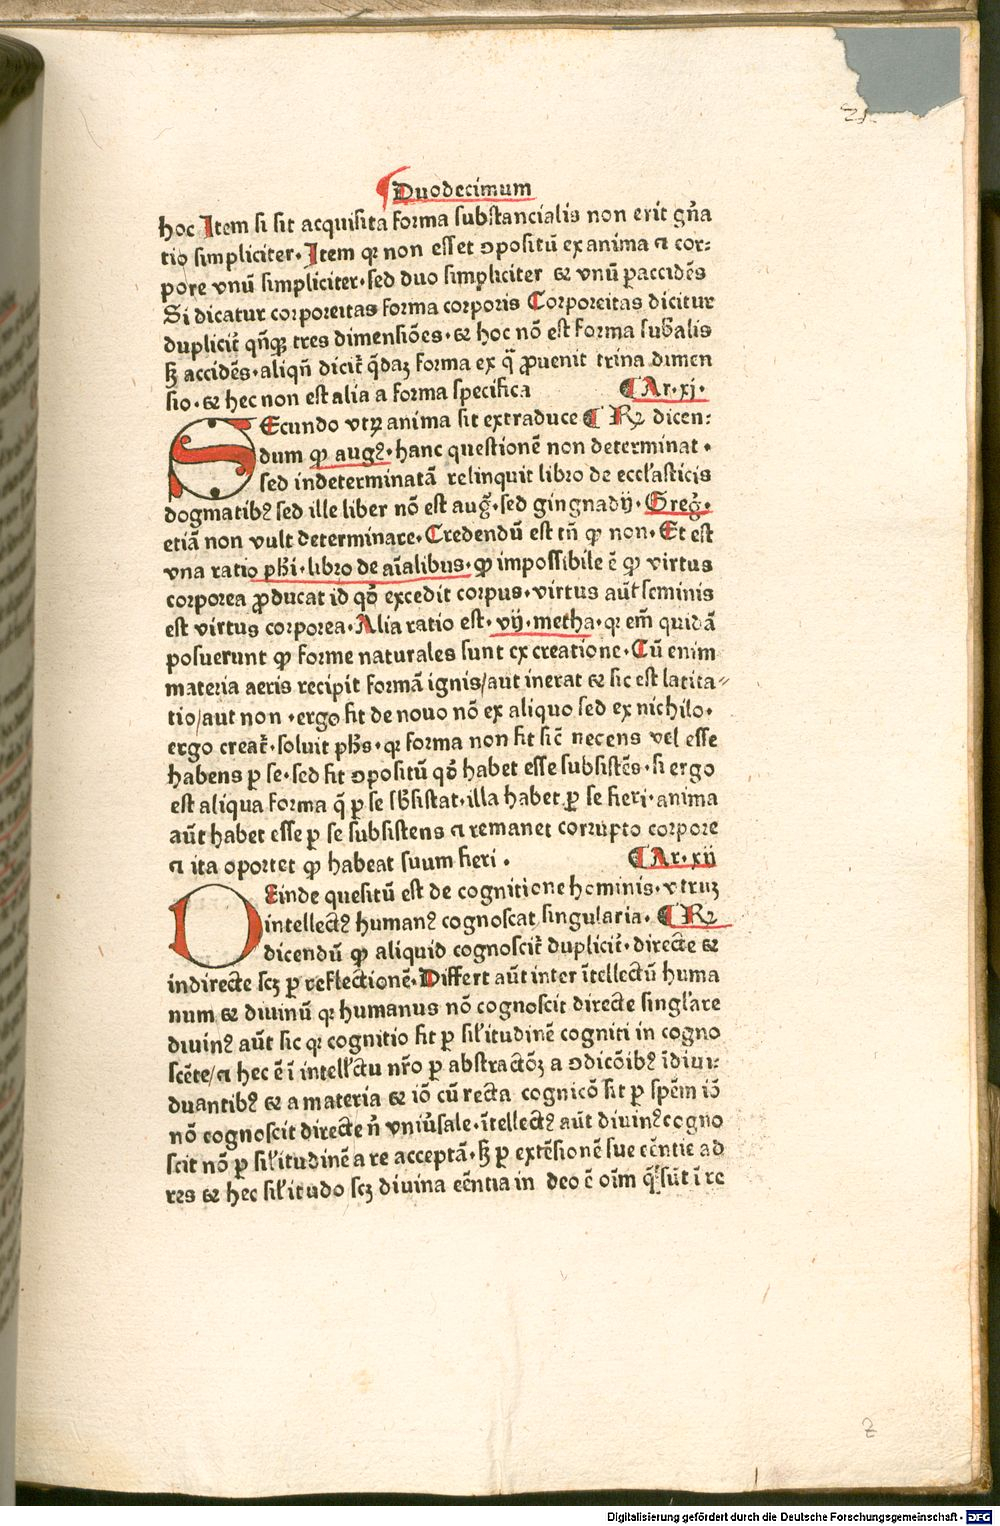 Duodecimum
hoc Item si sit acquisita forma substancialis non erit gn̄a
tio simpliciter. Item qꝛ non esset ꝯpositū ex anima ⁊ cor:
pore vnū simpliciter. sed duo simpliciter ⁊ vnū ꝑaccidēs
Si dicatur corporeitas forma corporis Corporeitas dicitur
duplicit̄ qn̄qꝫ tres dimensiōes. ⁊ hoc nō est forma subalis
sꝫ accidēs. aliqn̄ dicit̄ q̄daꝫ forma ex q̄ ꝓuenit trina dimen
sio. ⁊ hec non est alia a forma specifica ¶ Ar. xj.
SEcundo vtꝝ anima sit extraduce ¶ R⁊ dicen:
dum ꝙ augꝰ. hanc questionē non determinat.
sed indeterminatā relinquit libro de eccl'asticis
dogmatibꝰ sed ille liber nō est auḡ. sed gingnadij. Greḡ.
etiā non vult determinare. Credendū est tn̄ ꝙ non. Et est
vna ratio pħi. libro de aīalibus. ꝙ impossibile ē ꝙ virtus
corporea ꝓducat id qō excedit corpus. virtus aūt seminis
est virtus corporea. Alia ratio est. vij. metha. qꝛ em̄ quidā
posuerunt ꝙ forme naturales sunt ex creatione. Cū enim
materia aeris recipit formā ignis/aut inerat ⁊ sic est latita⸗
tio/aut non. ergo fit de nouo nō ex aliquo sed ex nichilo.
ergo creat̄. soluit pħs. qꝛ forma non fit sic̄ necens vel esse
habens ꝑ se. sed fit ꝯpositū qō habet esse subsistēs. si ergo
est aliqua forma q̄ ꝑ se sb̄sistat. illa habet ꝑ se fieri. anima
aūt habet esse ꝑ se subsistens ⁊ remanet corrupto corpore
⁊ ita oportet ꝙ habeat suum fieri. ¶ Ar. xij
DEinde quesitū est de cognitione hominis. vtruꝫ
intellectꝰ humanꝰ cognoscat singularia. ¶ R⁊
dicendū ꝙ aliquid cognoscit̄ duplicit̄. directe ⁊
indirecte scꝫ ꝑ reflectionē. Differt aūt inter ītellectū huma
num ⁊ diuinū qꝛ humanus nō cognoscit directe singl'are
diuinꝰ aūt sic qꝛ cognitio fit ꝑ sil'itudinē cogniti in cogno
scēte/⁊ hec ē ī intell'ctu nr̄o ꝑ abstractōꝫ a ꝯdicōibꝰ īdiui:
duantibꝰ ⁊ a materia ⁊ iō cū recta cognicō fit ꝑ spēm iō
nō cognoscit directe n̄ vniūsale. ītellectꝰ aūt diuinꝰ cogno
scit nō ꝑ sil'itudinē a re acceptā. sꝫ ꝑ extēsionē sue eēntie ad
res ⁊ hec sil'itudo scꝫ diuina eēntia in deo ē oīm q̄ sūt ī re
2
Digitalisierung gefördert durch die Deutsche Forschungsgemeinschaft - DFG